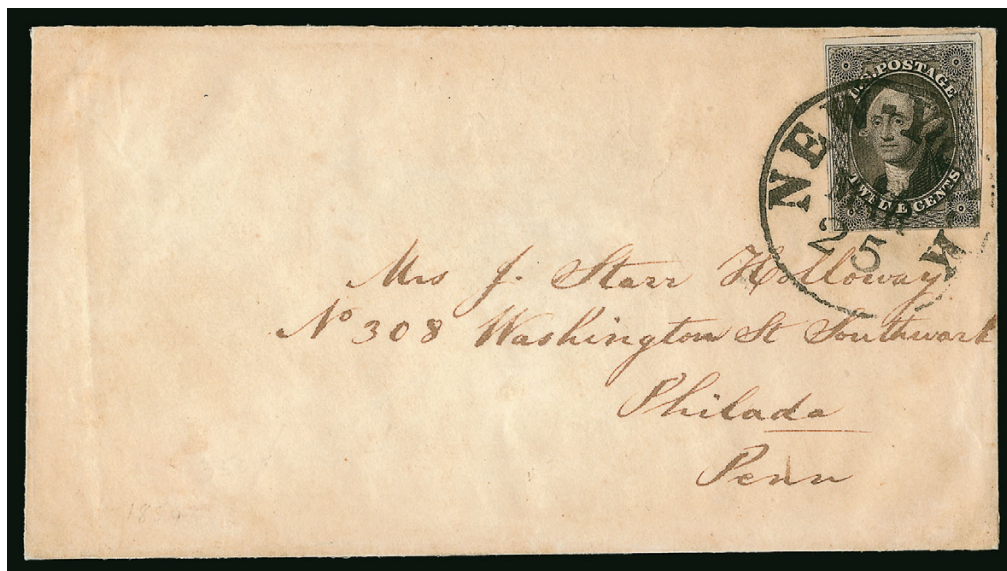 U.S. POSTAGE
TWELVE CENTS
NEW-Y
25
M
Mrs J. Starr Holloway
No 308 Washington St Southwark
Philada
Penn